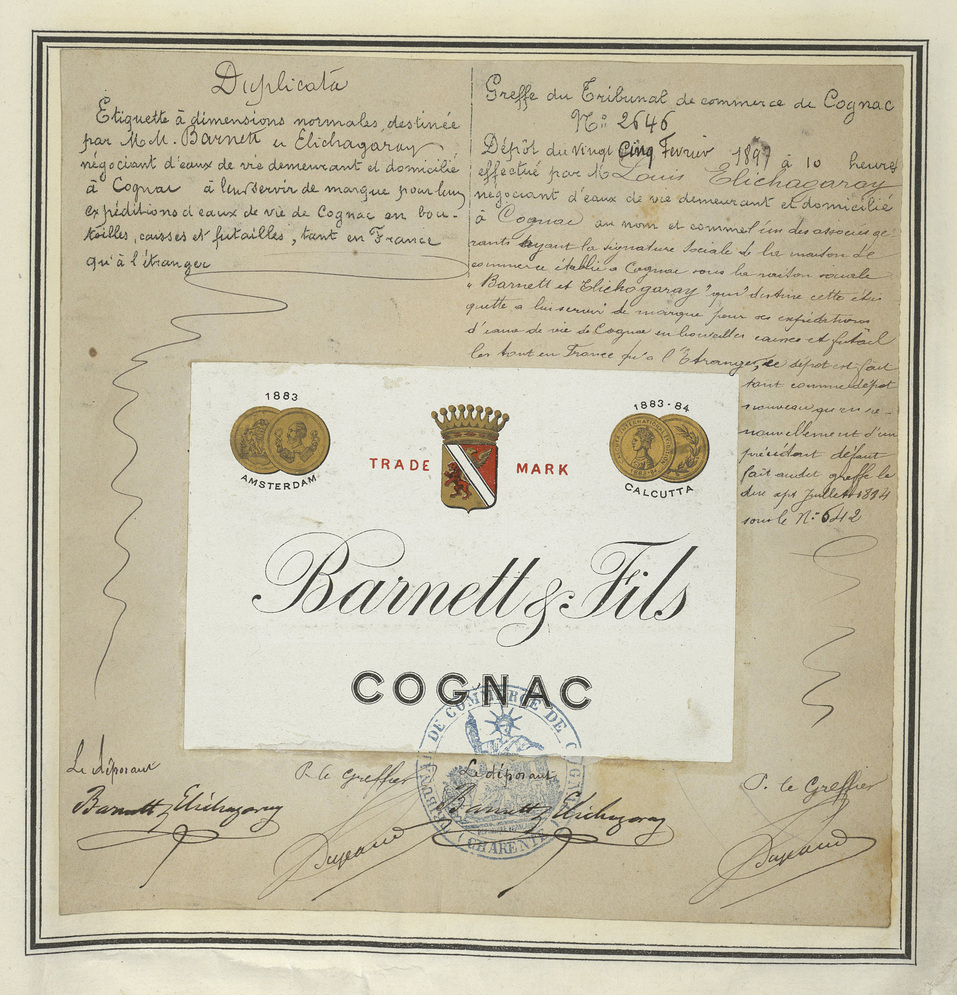 Duplicata
Etiquette à dimensions normales, destinée
par M.M. Barnett et Elichagaray
négociant d'eaux de vie demeurant et domicilié
à Cognac à leur servir de marque pour leurs
expéditions d'eaux de vie de Cognac en bou-
teilles, caisses et futailles, tant en France
qu'à l'étranger
Greffe du Tribunal de commerce de Cognac
N°: 2646
Dépôt du Vingt Cinq Fevrier 1897 à 10 heures
effectué par M Louis Elichagaray
négociant d'eaux de vie demeurant et domicilié
à Cognac au nom et comme l'un des associés gé-
rants ayant la signature sociale de la maison de
commerce établie à Cognac sous la raison sociale
"Barnett et Elichagaray" qui destine cette éti
quette a leur servir de marque pour ses expéditions
d'eaux de vie de Cognac en bouteilles caisses et futail
les tant en France qu'à l'Etranger, ce dépôt est fait
tant comme dépôt
nouveau qu'en re-
nouvellement d'un
précédent défaut
fait audit greffe le
dix sept Juillet 1894
sous le N°: 642
1883
AMSTERDAM
TRADE MARK
1883-84
CALCUTTA
Barnett & Fils
COGNAC
TRIBUNAL DE COMMERCE DE COGNAC
(CHARENTE)
Le déposant
Barnett & Elichagaray
P. le Greffier
Le déposant
Barnett & Elichagaray
P. le Greffier